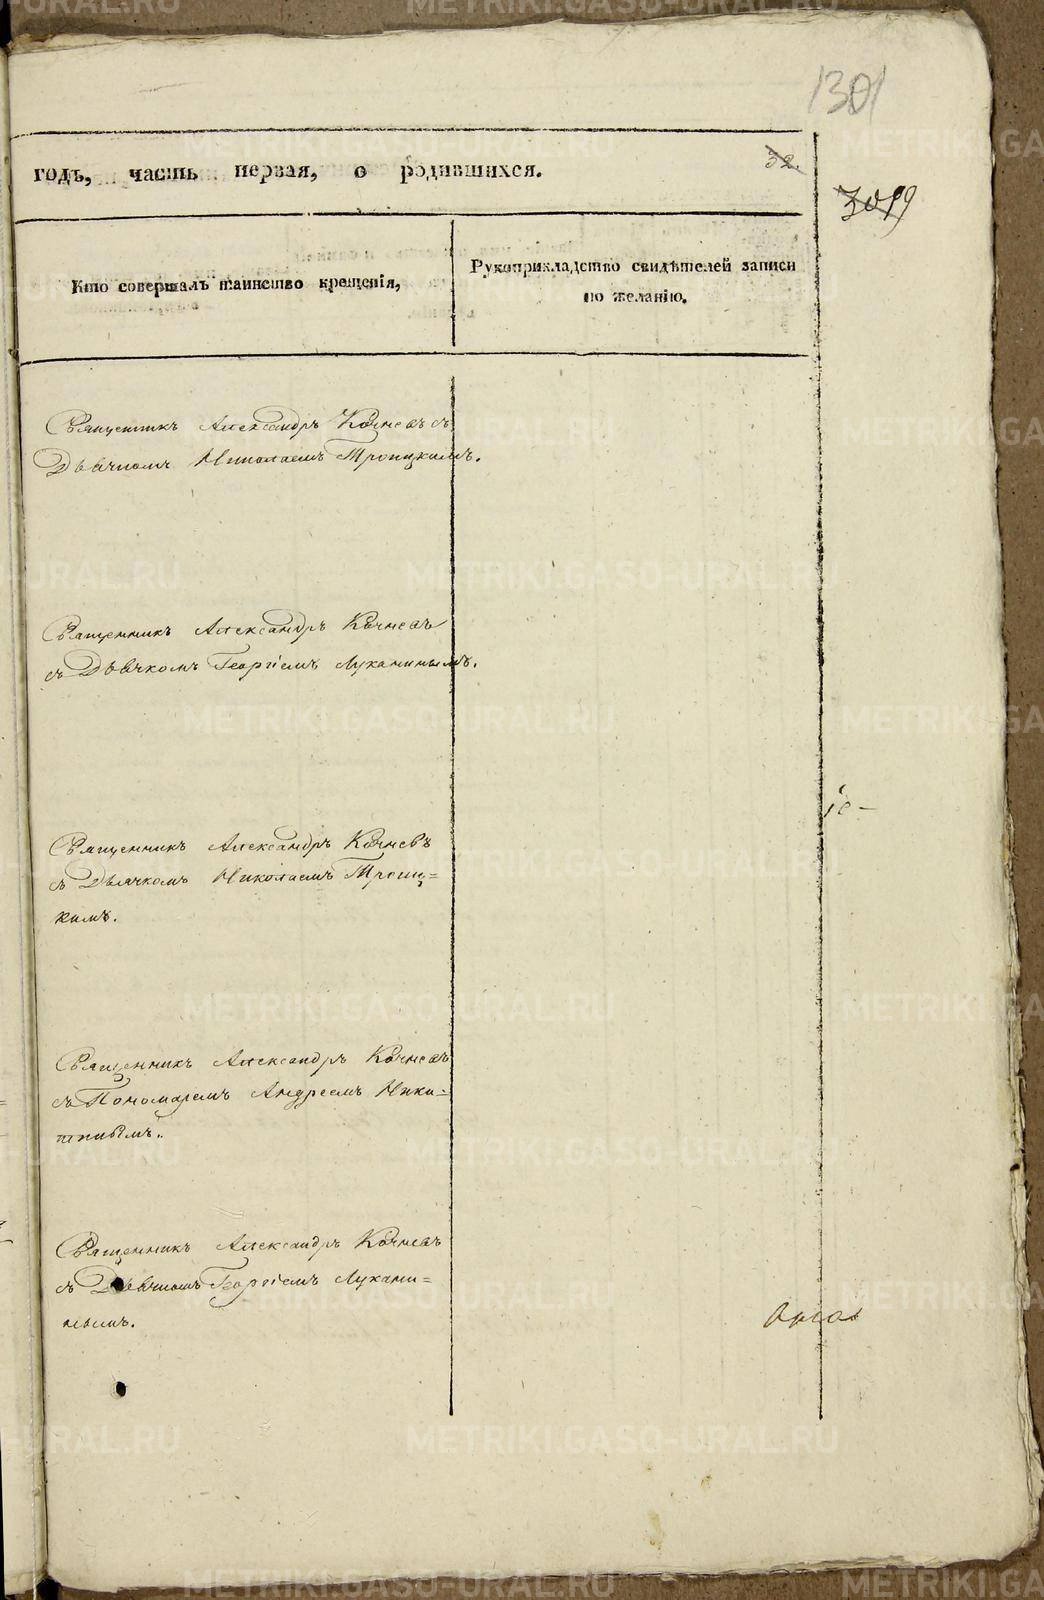 1301
годъ, часть первая, о родившихся.
32.
Кто совершалъ таинство крещенія,
Рукоприкладство свидѣтелей записи
по желанію.
Священникъ Александръ Кочневъ съ
Дьячкомъ Николаемъ Троицкимъ.
Священникъ Александръ Кочневъ
съ Дьячкомъ Георгіемъ Луканинымъ.
Священникъ Александръ Кочневъ
съ Дьячкомъ Николаемъ Троиц=
кимъ.
Священникъ Александръ Кочневъ
съ Пономаремъ Андреемъ Ники=
тинымъ.
Священникъ Александръ Кочневъ
съ Дьячкомъ Георгіемъ Лукани=
нымъ.
METRIKI.GASO-URAL.RU